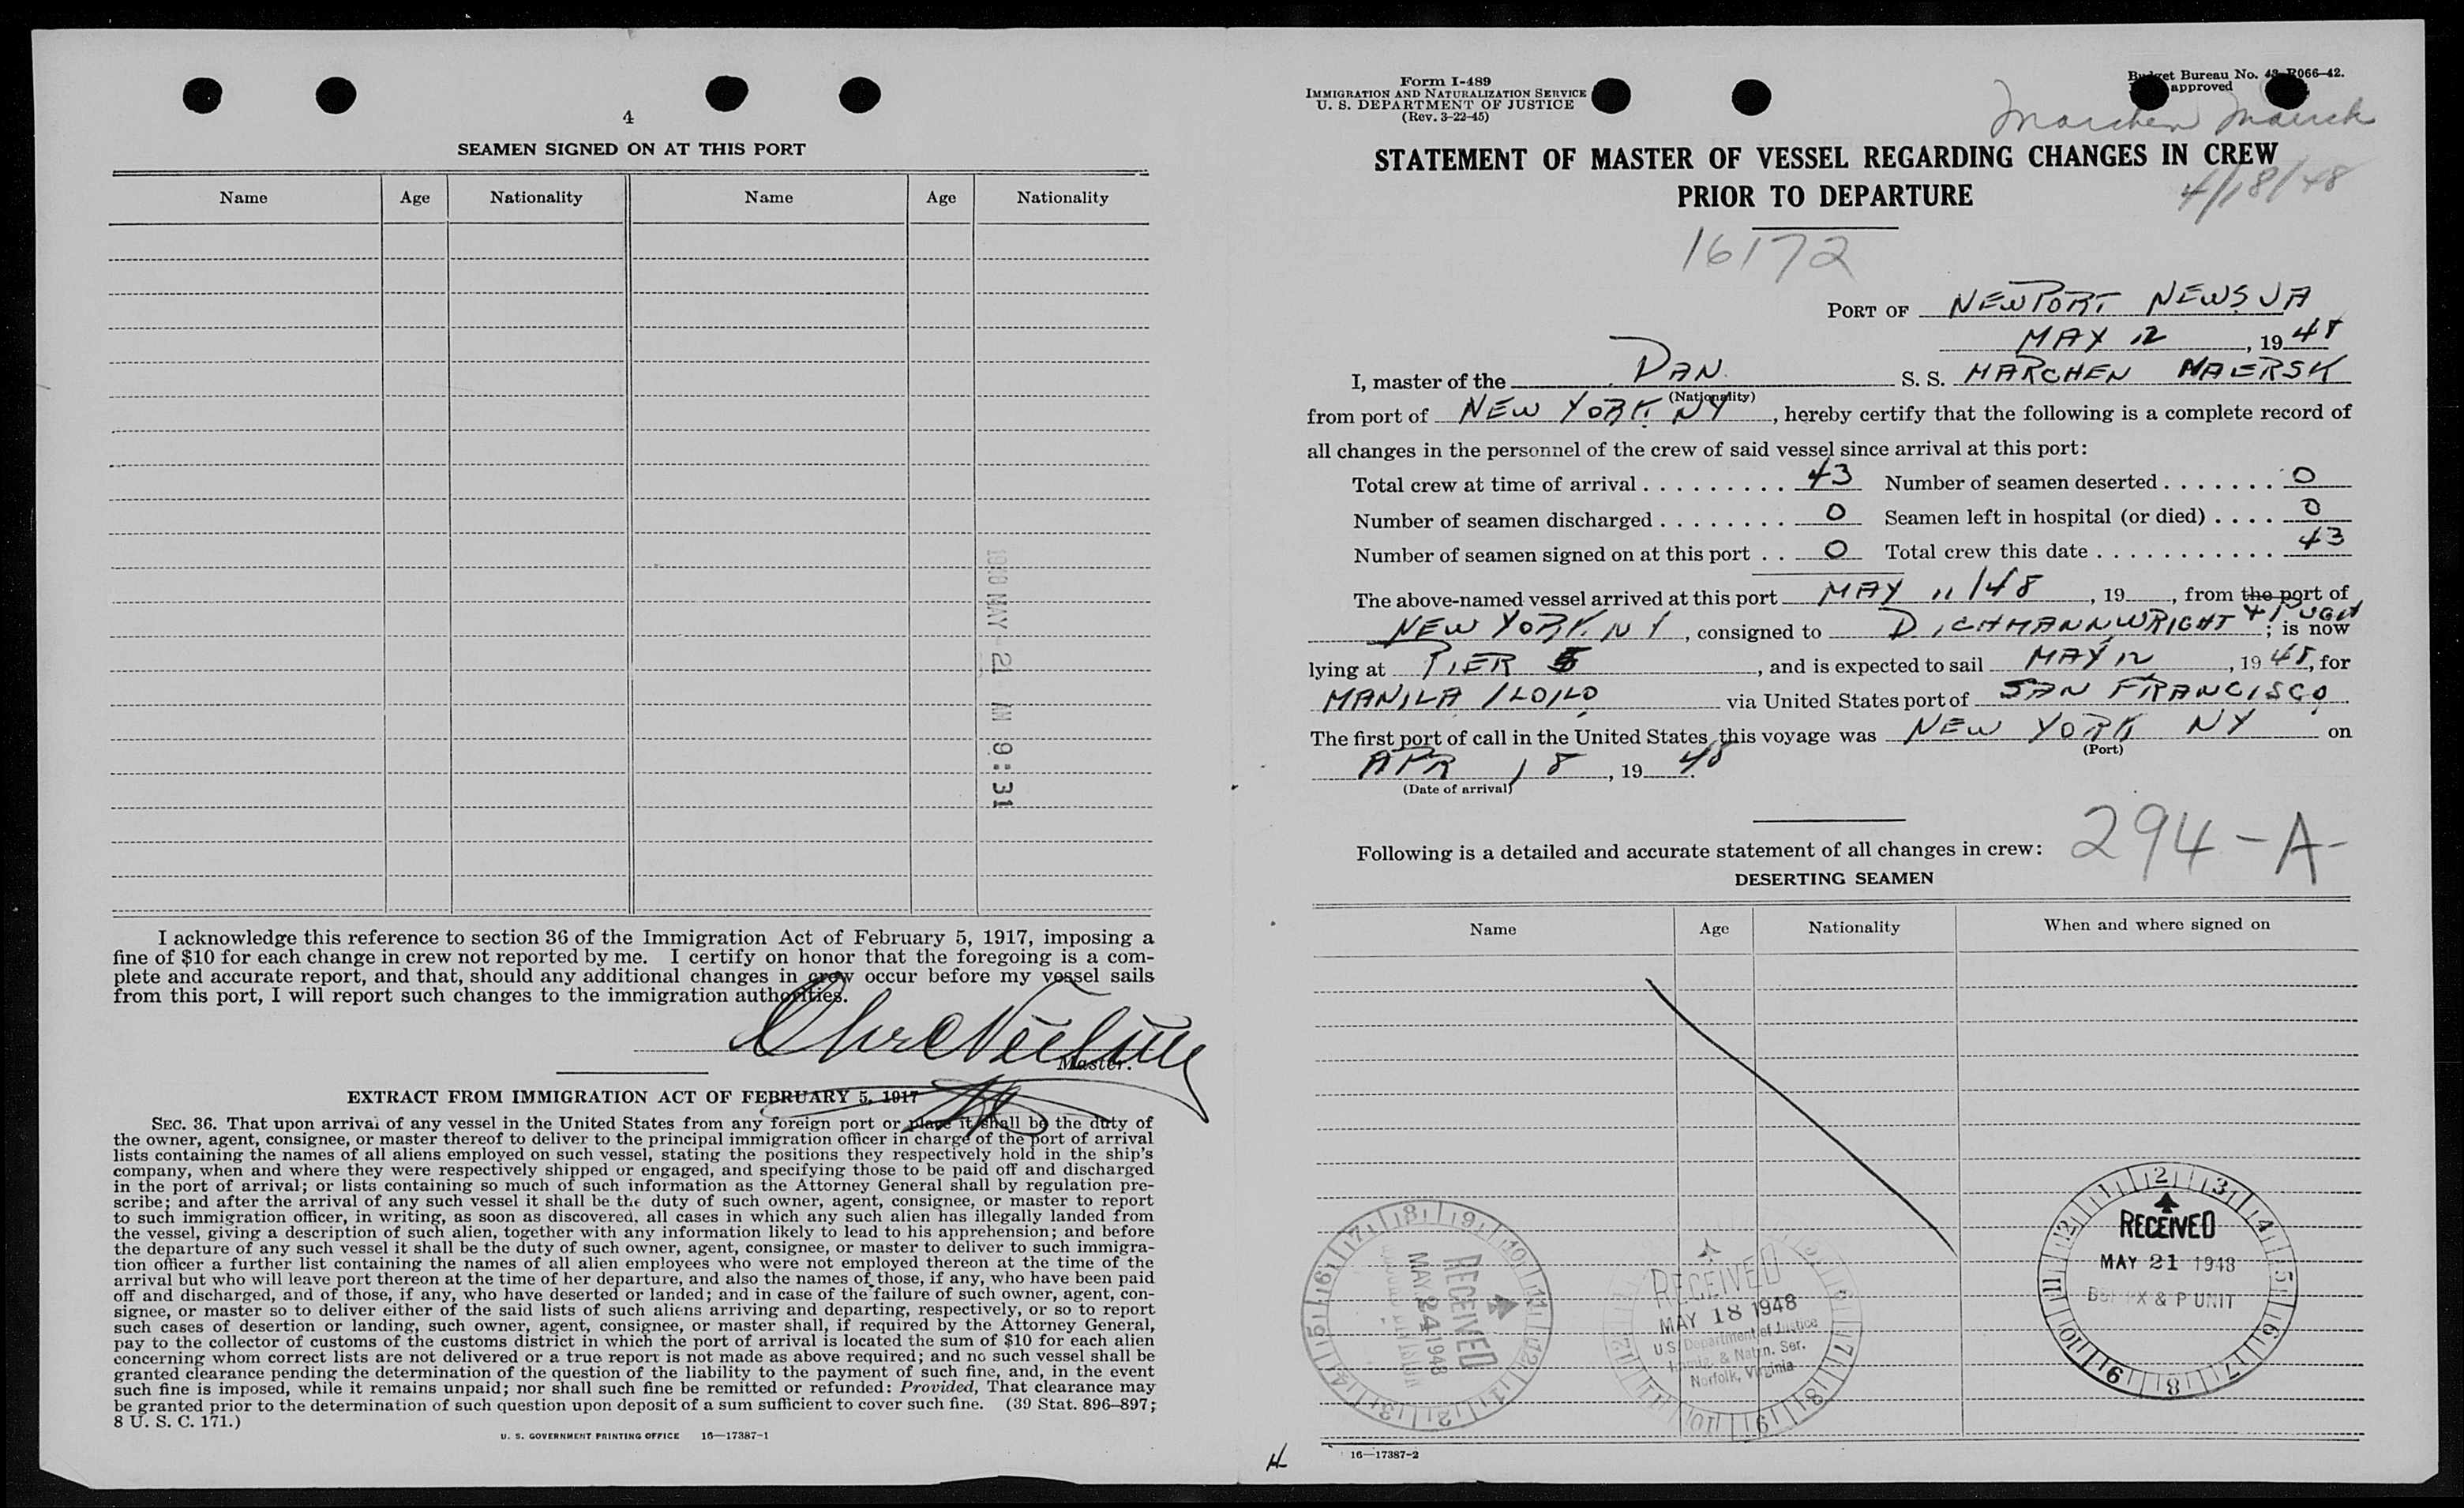 4
SEAMEN SIGNED ON AT THIS PORT
Name Age Nationality Name Age Nationality
MAY 21 AM 9:31
I acknowledge this reference to section 36 of the Immigration Act of February 5, 1917, imposing a
fine of $10 for each change in crew not reported by me. I certify on honor that the foregoing is a com-
plete and accurate report, and that, should any additional changes in crew occur before my vessel sails
from this port, I will report such changes to the immigration authorities.
Master.
EXTRACT FROM IMMIGRATION ACT OF FEBRUARY 5, 1917
SEC. 36. That upon arrival of any vessel in the United States from any foreign port or place it shall be the duty of
the owner, agent, consignee, or master thereof to deliver to the principal immigration officer in charge of the port of arrival
lists containing the names of all aliens employed on such vessel, stating the positions they respectively hold in the ship's
company, when and where they were respectively shipped or engaged, and specifying those to be paid off and discharged
in the port of arrival; or lists containing so much of such information as the Attorney General shall by regulation pre-
scribe; and after the arrival of any such vessel it shall be the duty of such owner, agent, consignee, or master to report
to such immigration officer, in writing, as soon as discovered, all cases in which any such alien has illegally landed from
the vessel, giving a description of such alien, together with any information likely to lead to his apprehension; and before
the departure of any such vessel it shall be the duty of such owner, agent, consignee, or master to deliver to such immigra-
tion officer a further list containing the names of all alien employees who were not employed thereon at the time of the
arrival but who will leave port thereon at the time of her departure, and also the names of those, if any, who have been paid
off and discharged, and of those, if any, who have deserted or landed; and in case of the failure of such owner, agent, con-
signee, or master so to deliver either of the said lists of such aliens arriving and departing, respectively, or so to report
such cases of desertion or landing, such owner, agent, consignee, or master shall, if required by the Attorney General,
pay to the collector of customs of the customs district in which the port of arrival is located the sum of $10 for each alien
concerning whom correct lists are not delivered or a true report is not made as above required; and no such vessel shall be
granted clearance pending the determination of the question of the liability to the payment of such fine, and, in the event
such fine is imposed, while it remains unpaid; nor shall such fine be remitted or refunded: Provided, That clearance may
be granted prior to the determination of such question upon deposit of a sum sufficient to cover such fine. (39 Stat. 896–897;
8 U. S. C. 171.)
U. S. GOVERNMENT PRINTING OFFICE 16—17387-1
Form I-489
IMMIGRATION AND NATURALIZATION SERVICE
U. S. DEPARTMENT OF JUSTICE
(Rev. 3-22-45)
Budget Bureau No. 43-R066-42.
approved
Marchen Maersk
STATEMENT OF MASTER OF VESSEL REGARDING CHANGES IN CREW
PRIOR TO DEPARTURE
4/18/48
16172
PORT OF NEWPORT NEWS VA
MAY 12, 1948
I, master of the DAN S. S. MARCHEN MAERSK
(Nationality)
from port of NEW YORK NY, hereby certify that the following is a complete record of
all changes in the personnel of the crew of said vessel since arrival at this port:
Total crew at time of arrival 43 Number of seamen deserted 0
Number of seamen discharged 0 Seamen left in hospital (or died) 0
Number of seamen signed on at this port 0 Total crew this date 43
The above-named vessel arrived at this port MAY 11/48, 19, from the port of
NEW YORK NY, consigned to DICHMANN WRIGHT & PUGH; is now
lying at PIER 5, and is expected to sail MAY 12, 1948, for
MANILA ILOILO via United States port of SAN FRANCISCO
The first port of call in the United States this voyage was NEW YORK NY on
(Port)
APR 18, 1948
(Date of arrival)
294-A-
Following is a detailed and accurate statement of all changes in crew:
DESERTING SEAMEN
Name Age Nationality When and where signed on
RECEIVED
MAY 24 1948
RECEIVED
MAY 18 1948
U.S. Department of Justice
Immig. & Natzn. Ser.
Norfolk, Virginia
RECEIVED
MAY 21 1948
X & P UNIT
16—17387-2